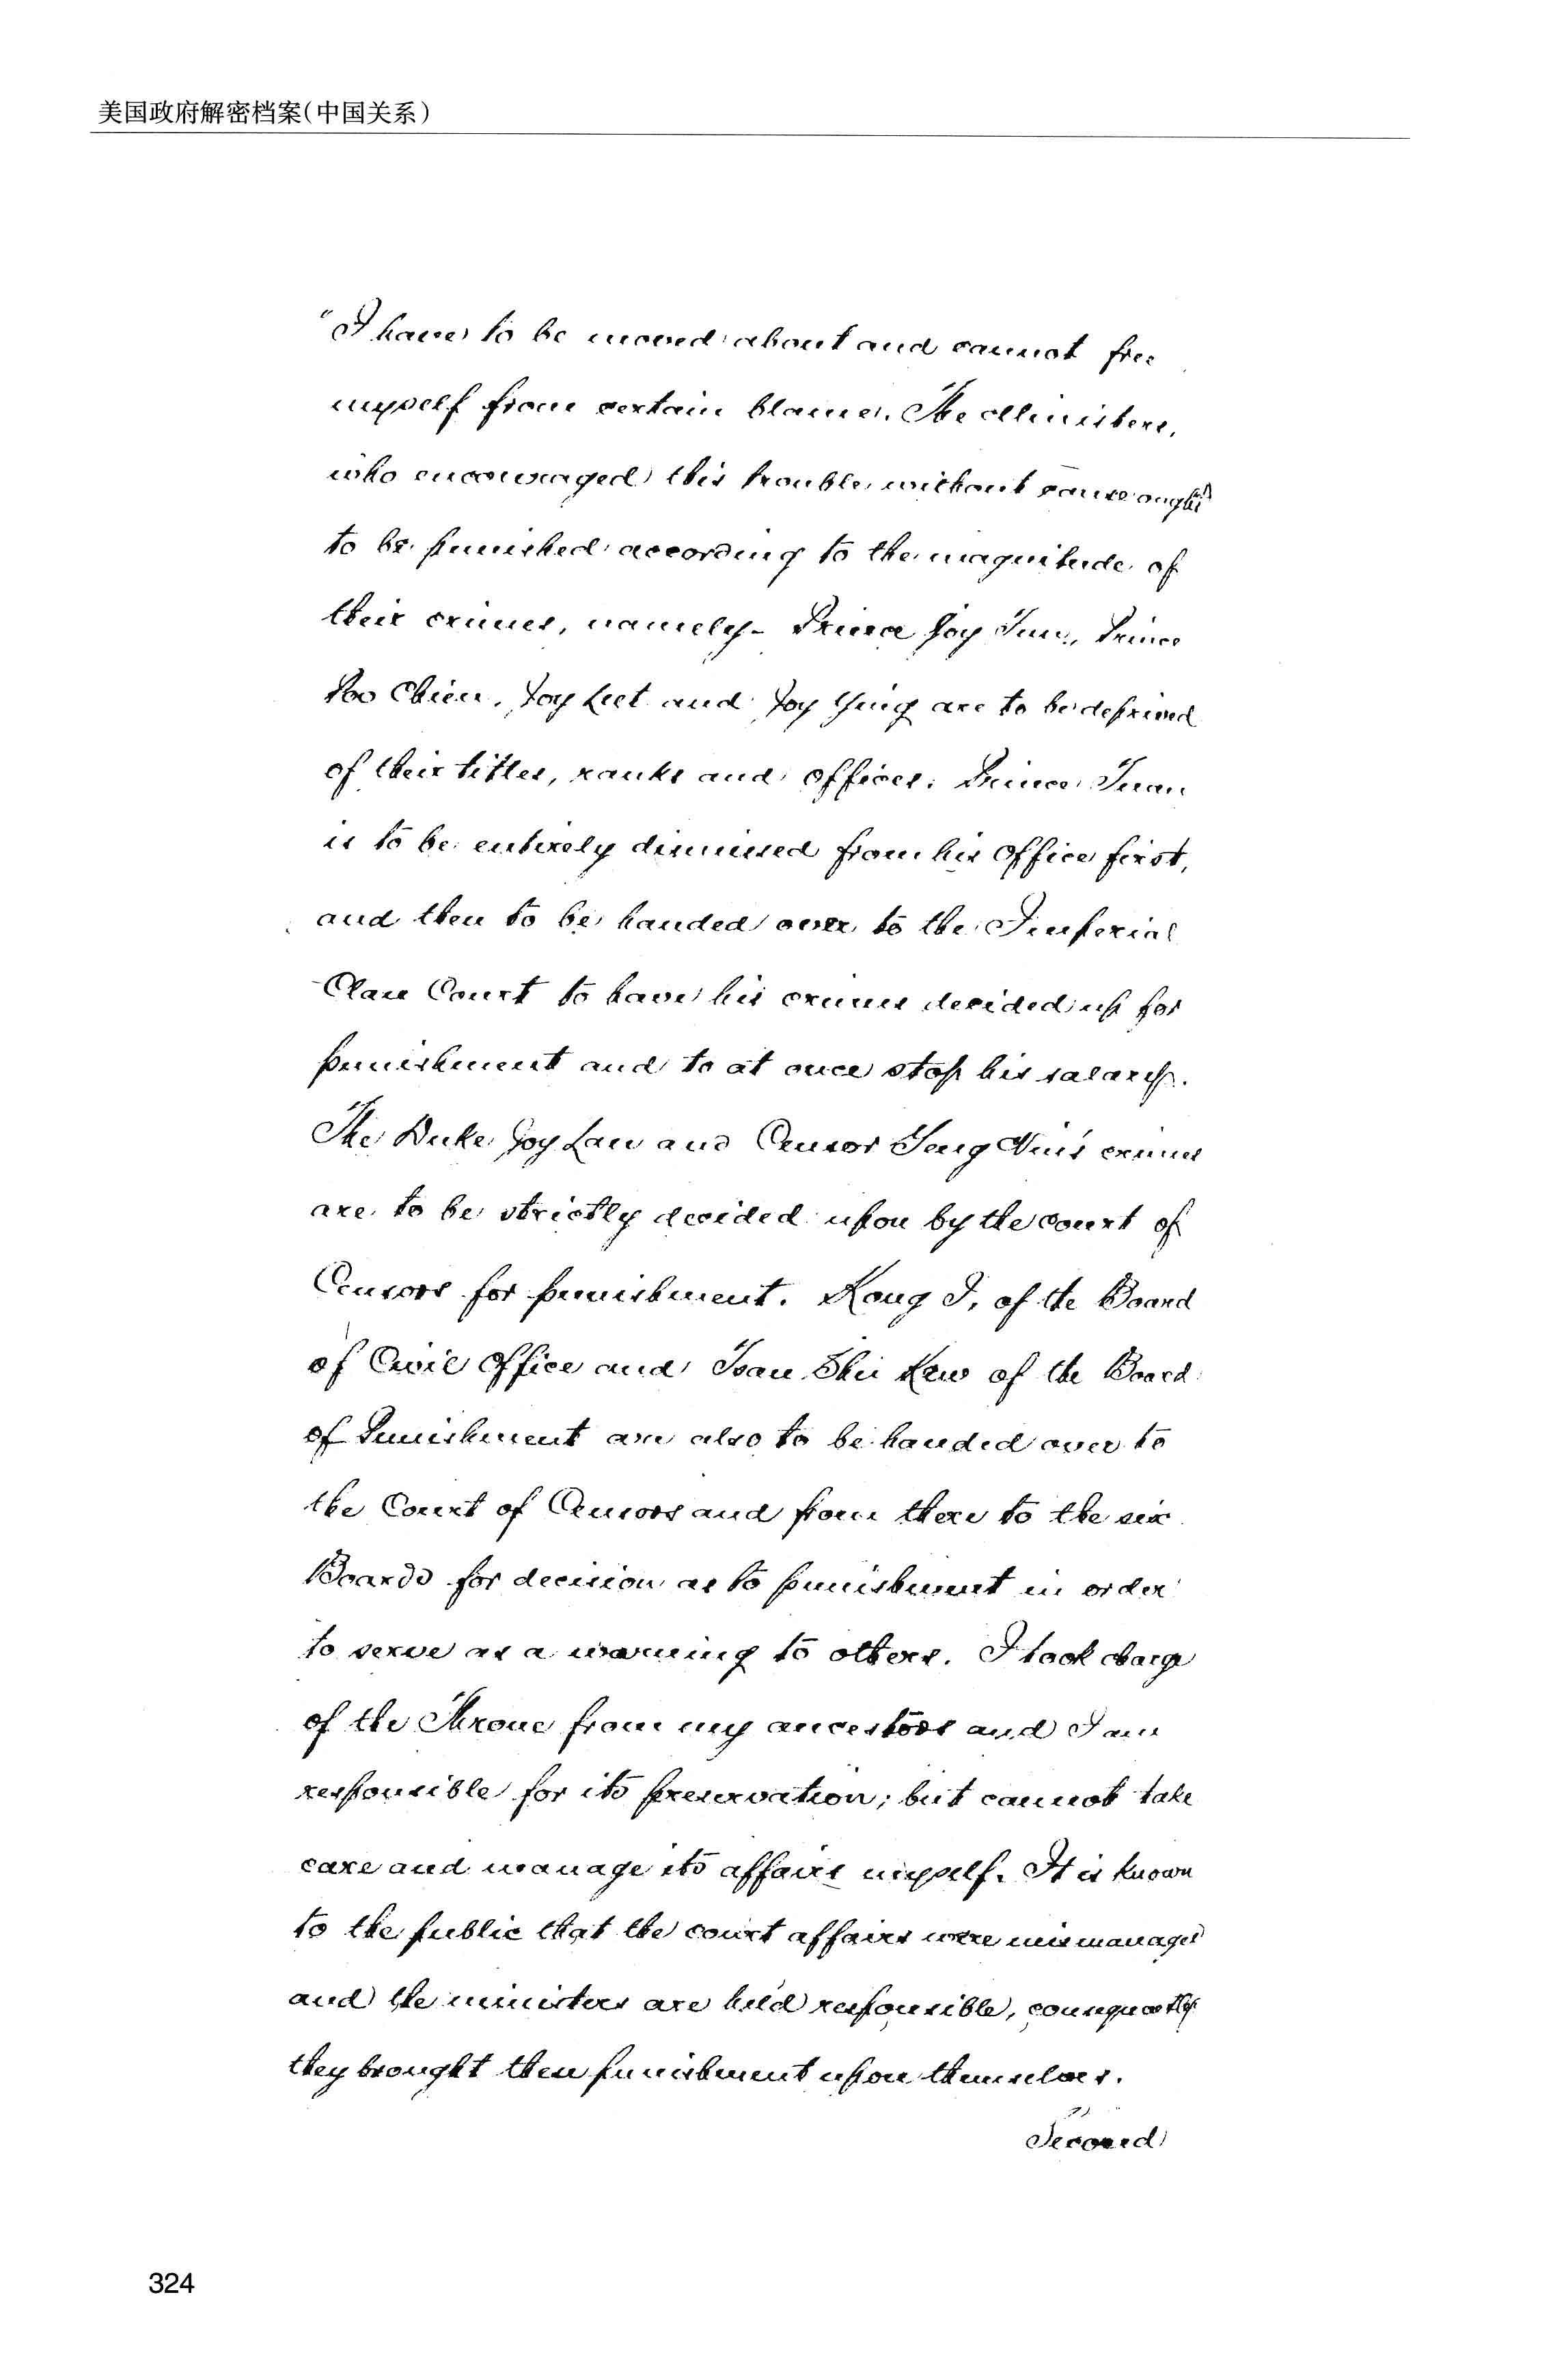 美国政府解密档案(中国关系)
"I have to be moved about and cannot free
myself from certain blame. The Ministers,
who encouraged this trouble without cause ought
to be punished according to the magnitude of
their crimes, namely- Prince Joy Tun, Prince
Poo Chien, Joy Leet and Joy Ying are to be deprived
of their titles, ranks and offices. Prince Tuan
is to be entirely dismissed from his Office first,
and then to be handed over to the Imperial
Clan Court to have his crimes decided up for
punishment and to at once stop his salary.
The Duke Joy Lan and Censor Yeng Nin's crimes
are to be strictly decided upon by the court of
Censors for punishment. Kong I, of the Board
of Civil Office and Tsan Shu Kew of the Board
of Punishment are also to be handed over to
the Court of Censors and from there to the six
Boards for decision as to punishment in order
to serve as a warning to others. I took charge
of the Throne from my ancestors and I am
responsible for its preservation; but cannot take
care and manage its affairs myself. It is known
to the public that the court affairs were mismanaged
and the ministers are held responsible, consequently
they brought these punishment upon themselves.
Second
324